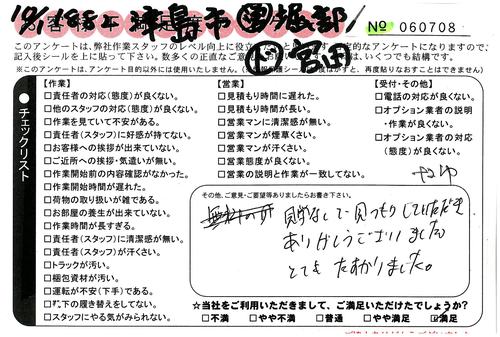 10/18
津島市
No 060708
このアンケートは、弊社作業スタッフのレベル向上に役立
的なアンケートになりますので、
記入後シールを上に貼って下さい。数多くの正直なご意
はいくつでも結構です。
※このアンケートは、アンケート目的以外には使用いたしません。
すと、再度貼りなおすことはできません)
チェックリスト
【作業】
□責任者の対応(態度)が良くない。
□他のスタッフの対応(態度)が良くない。
□作業を見ていて不安がある。
□責任者(スタッフ)に好感が持てない。
□お客様への挨拶が出来ていない。
□ご近所への挨拶・気遣いが無い。
□作業開始前の内容確認がなかった。
□作業開始時間が遅れた。
□荷物の取り扱いが雑である。
□お部屋の養生が出来ていない。
□作業時間が長すぎる。
□責任者(スタッフ)に清潔感が無い。
□責任者(スタッフ)が汗くさい。
□トラックが汚い。
□梱包資材が汚い。
□運転が不安(下手)である。
下の履き替えをしてない。
□スタッフにやる気がみられない。
【営業】
□見積もり時間に遅れた。
□見積もり時間が長い。
□営業マンに清潔感が無い。
□営業マンが煙草くさい。
□営業マンが汗くさい。
□営業態度が良くない。
□営業の説明と作業が一致してない。
【受付・その他】
□電話の対応が良くない。
□オプション業者の説明
・作業が良くない。
□オプション業者の対応
(態度)が良くない。
その他、ご意見・ご要望等ありましたらお書き下さい。
見学なしで見つもりしていただき
ありがとうございました
とても たすかりました。
☆当社をご利用いただきまして、ご満足いただけたでしょうか?
□不満 □やや不満 □普通 □やや満足 ☑満足